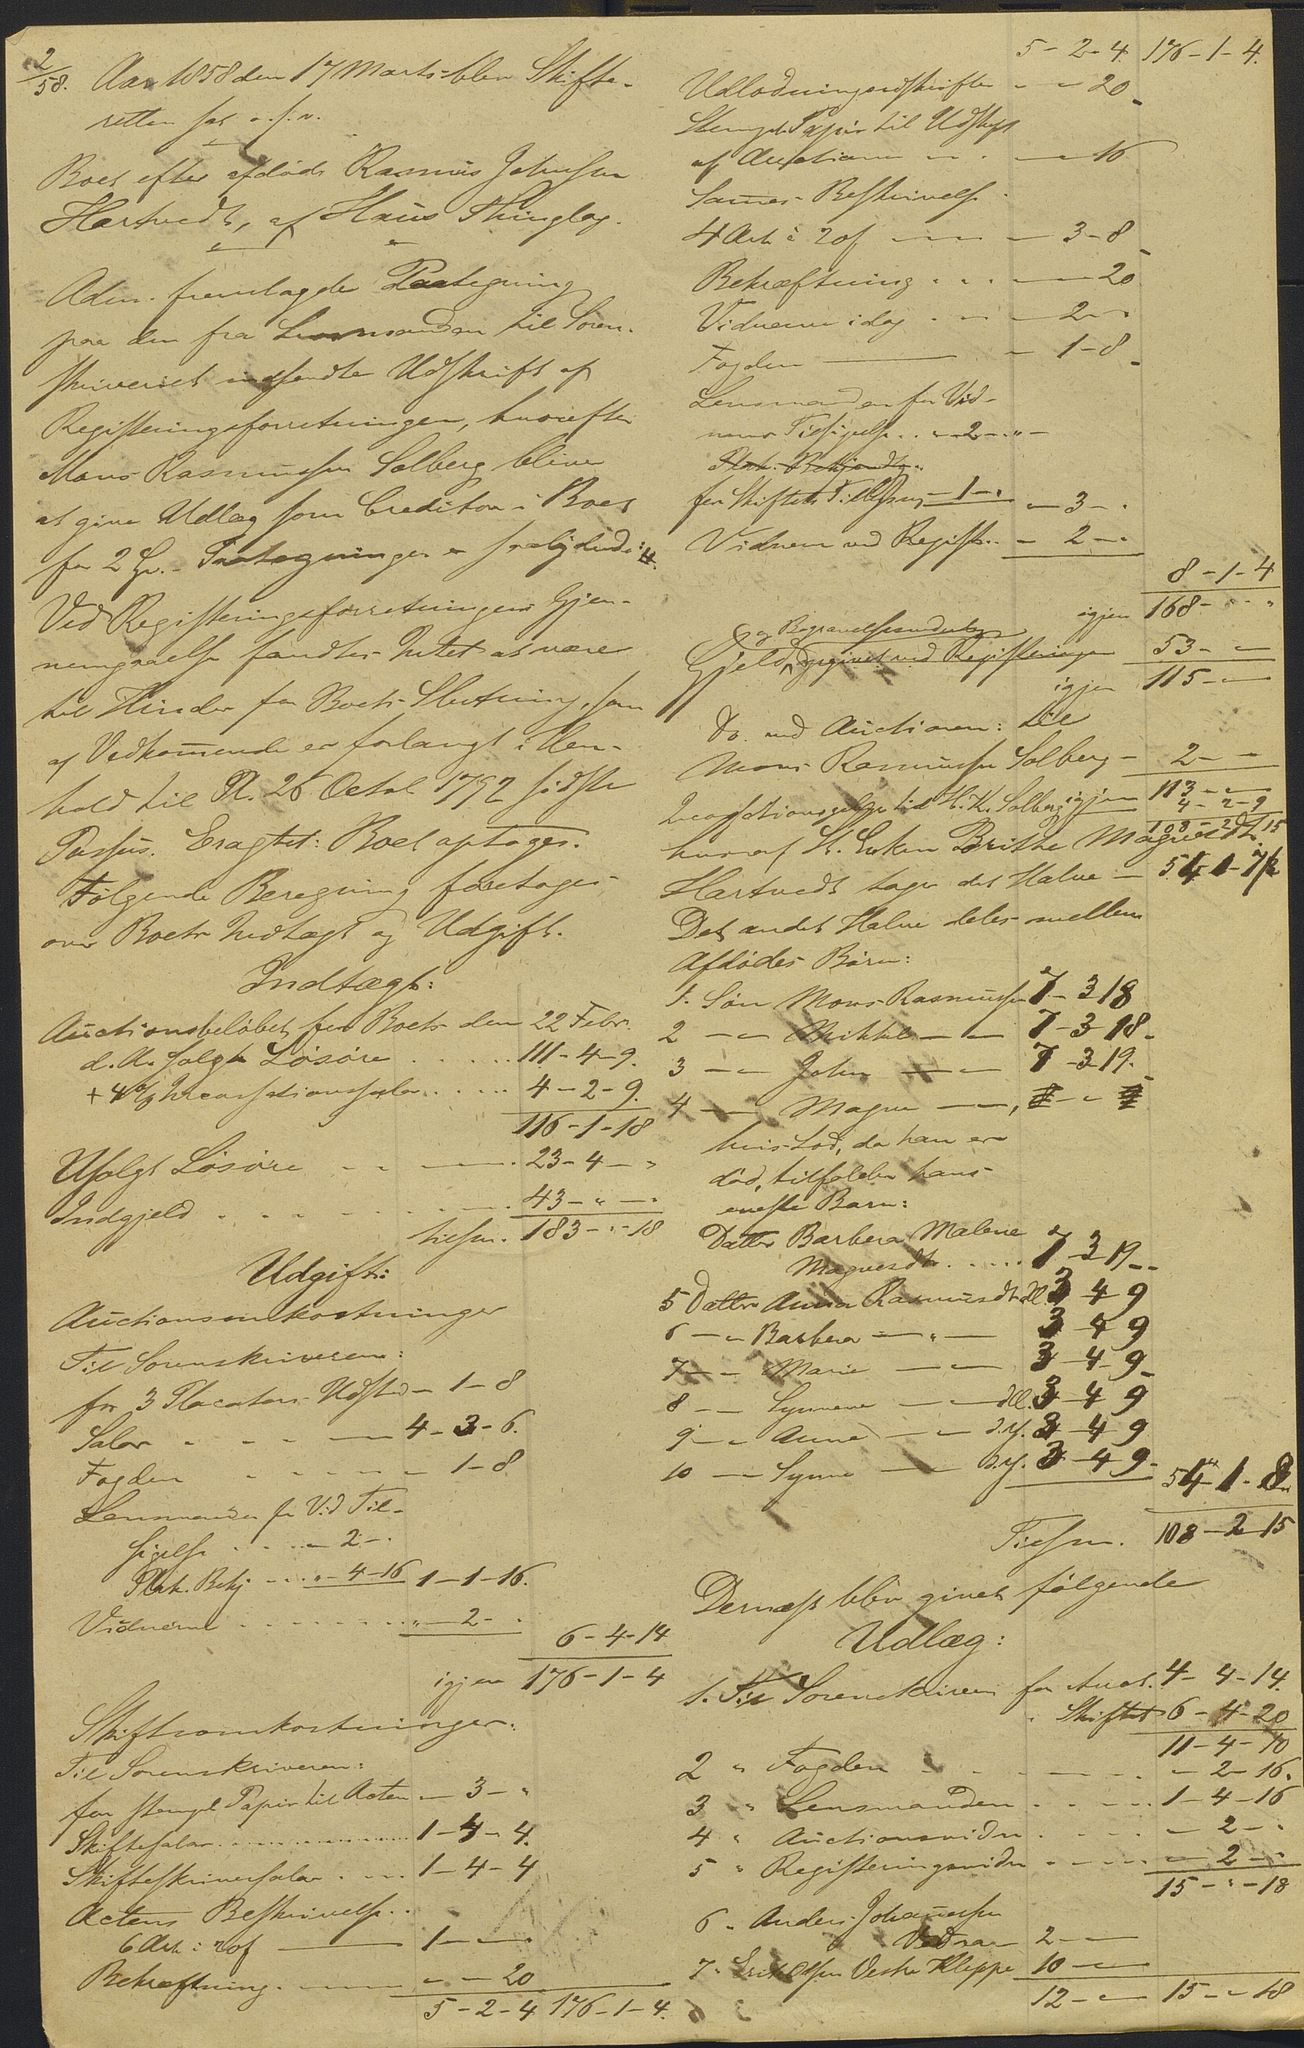 2/58. Aar 1858 den 17 Marts blev Skifte-
retten sat o.s.v.
Boet efter afdøde Rasmus Johnsen
Hartvedt, af Haus Thinglag.
Adm. fremlagde Paategning
paa den fra Lensmanden til Soren-
skriveriet indsendte Udskrift af
Registeringsforretningen, hvorefter
Mons Rasmussen Solberg bliver
at give Udlæg som Creditor i Boet
for 2 Spd. Paategningen er saalydende:
Ved Registeringsforretningens Gjen-
nemgaaelse fandtes Intet at være
til Hinder for Boets Slutning, som
af Vedkommende er forlangt i Hen-
hold til Pl. 26 Octob. 1792 sidste
Passus. Eragtet: Boet optages.
Følgende Beregning foretages
over Boets Indtægt og Udgift.
Indtægt:
Auctionsbeløbet for Boets den 22 Febr.
d.A. solgte Løsøre . . . . . 111-4-9.
+ 4% Incassationssalær . . . . 4-2-9.
116-1-18
Usolgt Løsøre . . 23-4-"
Indgjeld . . . . 43-"-"
tilsm. 183-"-18
Udgift:
Auctionsomkostninger
Til Sorenskriveren:
for 3 Placaters Udsted - 1-8
Salær . . . . 4-3-6.
Fogden . . . . 1-8
Lensmanden for Vid. Til-
sigelse . . . . - 2 -.
Plak. Bekj. . . . "-4-16 1-1-16.
Vidnerne . . . . . "-2-.
6-4-14
igjen 176-1-4
Skifteomkostninger:
Til Sorenskriveren:
for stempl. Papir til Acten - 3 - "
Skiftesalær . . . . . 1-4-4.
Skifteskriversalær . . . . 1-4-4
Actens Beskrivelse . .
6 Ark à 20 s 1 - -
Bekræftning . - - 20
5-2-4 176-1-4.
5-2-4. 176-1-4.
Udlodningsudskrifter - - 20
Stempl. Papir til Udskrift
af Auctionen - - 16
Sammes Beskrivelse
4 Ark à 20 s - 3-8
Bekræftning . . . - 20
Vidnerne i dag . . - 2 - .
Fogden - 1-8
Lensmanden for Vid-
ners Tilsigelse . . - 2 - " -
Plak. Bekjendtg.
for Skiftets Tillysning - 1 - . - 3 - .
Vidnerne ved Registr. . - 2 - .
8-1-4
igjen 168- - "
og Begravelsesudgifter
Gjeld, opgivet ved Registeringen 53 - -
igjen 115 - -
Do. ved Auctionen: til
Mons Rasmussen Solberg - 2 - -
igjen 113 - -
Incassationssalær til H. K. Solberg 4-2-9
108-2-15
hvoraf St. Enken Brithe Magnesdt.
Hartvedt tager det Halve - 54-1-7½
Det andet Halve deles mellem
Afdødes Børn:
1. Søn Mons Rasmussen 7-3-18
2 - " Mikkel - " - 7-3-18.
3 - " John - " - 7-3-19.
4 - Magne - ,
hvis Lod, da han er
død, tilfalder hans
eneste Barn:
Datter Barbera Malene
Magnesdt. . . . . 7-3-19
5 Datter Anna Rasmusdt. æl. 3-4-9
6 - " Barbera - " - 3-4-9
7 - - Marie - - 3-4-9
8 - - Synneve - - æl. 3-4-9
9 - " Anna - " d.y. 3-4-9
10 - Synneve - d.y. 3-4-9.
54-1-8
Tilsm. 108-2-15
Dernæst blev givet følgende
Udlæg:
1. Til Sorenskriveren for Auct. 4-4-14.
" Skiftet 6-4-20
11-4-10
2 " Fogden . . . . - 2-16.
3 " Lensmanden . . . . 1-4-16
4 " Auctionsvidner . . . - 2 - .
5 " Registeringsvidner . . . - 2 - .
15-"-18
6. Anders Johannessen
2 - -
7. Erik Olsen Vestre Kleppe 10 - -
12 - - 15-"-18